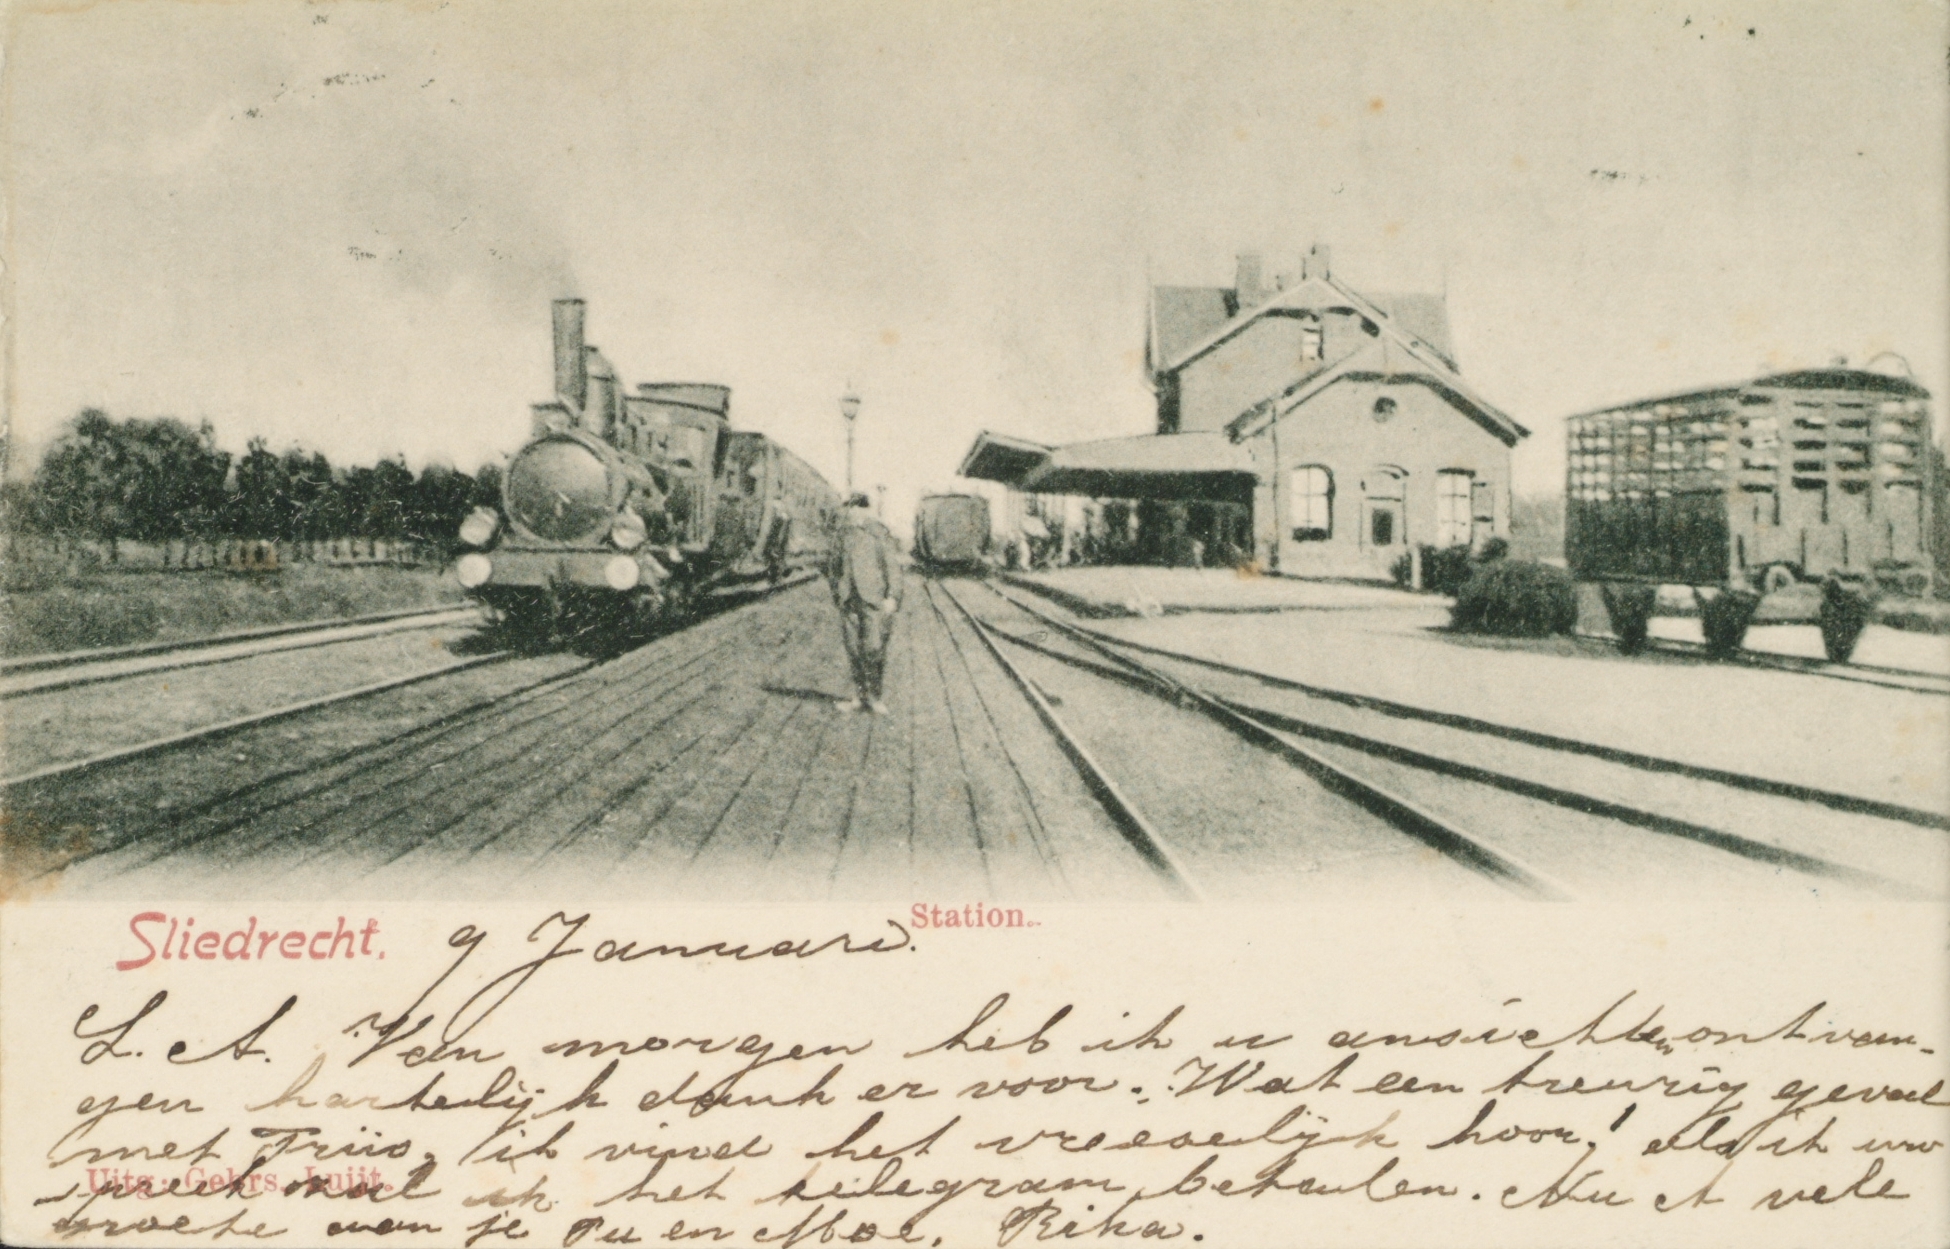 Station.
Sliedrecht. 9 Januari.
L. A. Van morgen heb ik u ansichten ontvan-
gen hartelijk dank er voor. Wat een treurig geval
met Truus, ik vind het vreeselijk hoor! als ik uw
spreek zal ik het telegram betalen. Nu A vele
Uitg: Gebrs. Luijt.
groete van je Pu en Moe. Rika.